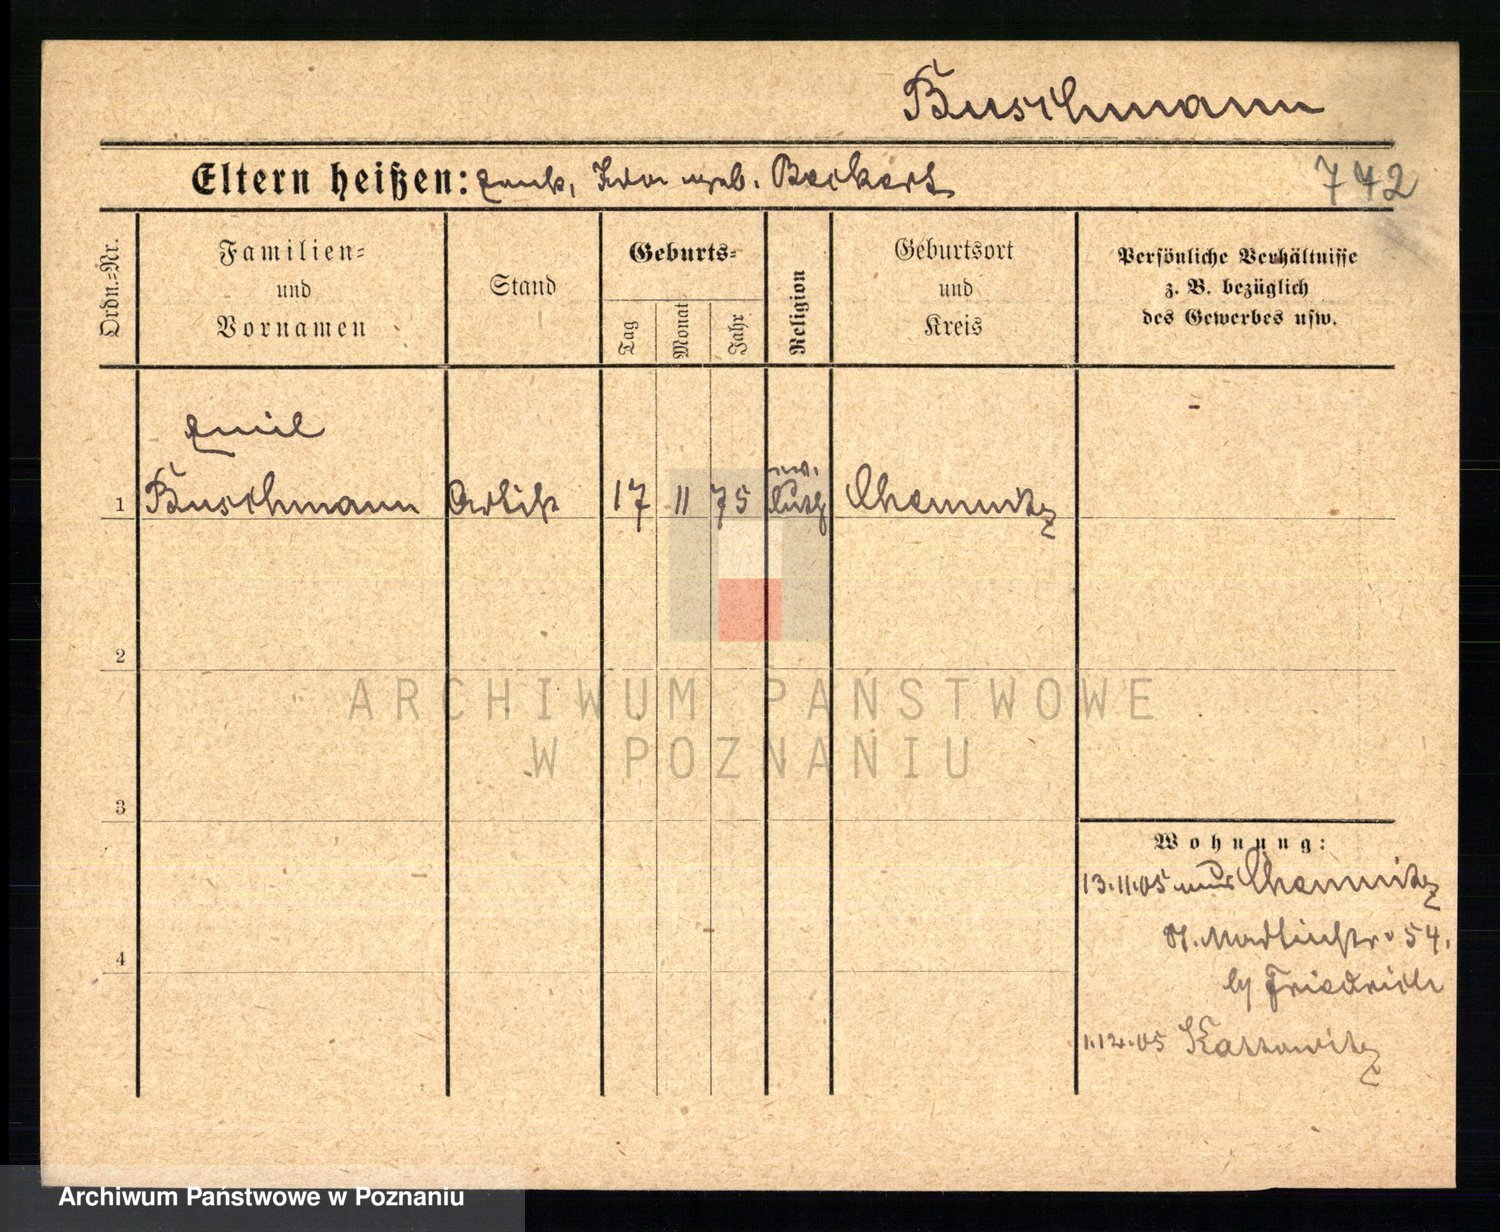 Buschmann
Eltern heißen: Ida geb. Beckert
742
Ordn.=Nr.
Familien=
und
Vornamen
Stand
Geburts=
Tag
Monat
Jahr
Religion
Geburtsort
und
Kreis
Persönliche Verhältnisse
z. B. bezüglich
des Gewerbes usw.
Emil
1 Buschmann Artist 17 11 75 ev. luth Chemnitz
2
3
4
Wohnung:
13.11.05 aus Chemnitz
St. Martinstr. 54.
by Friedrich
1.12.05 Kattowitz
ARCHIWUM PAŃSTWOWE
W POZNANIU
Archiwum Państwowe w Poznaniu